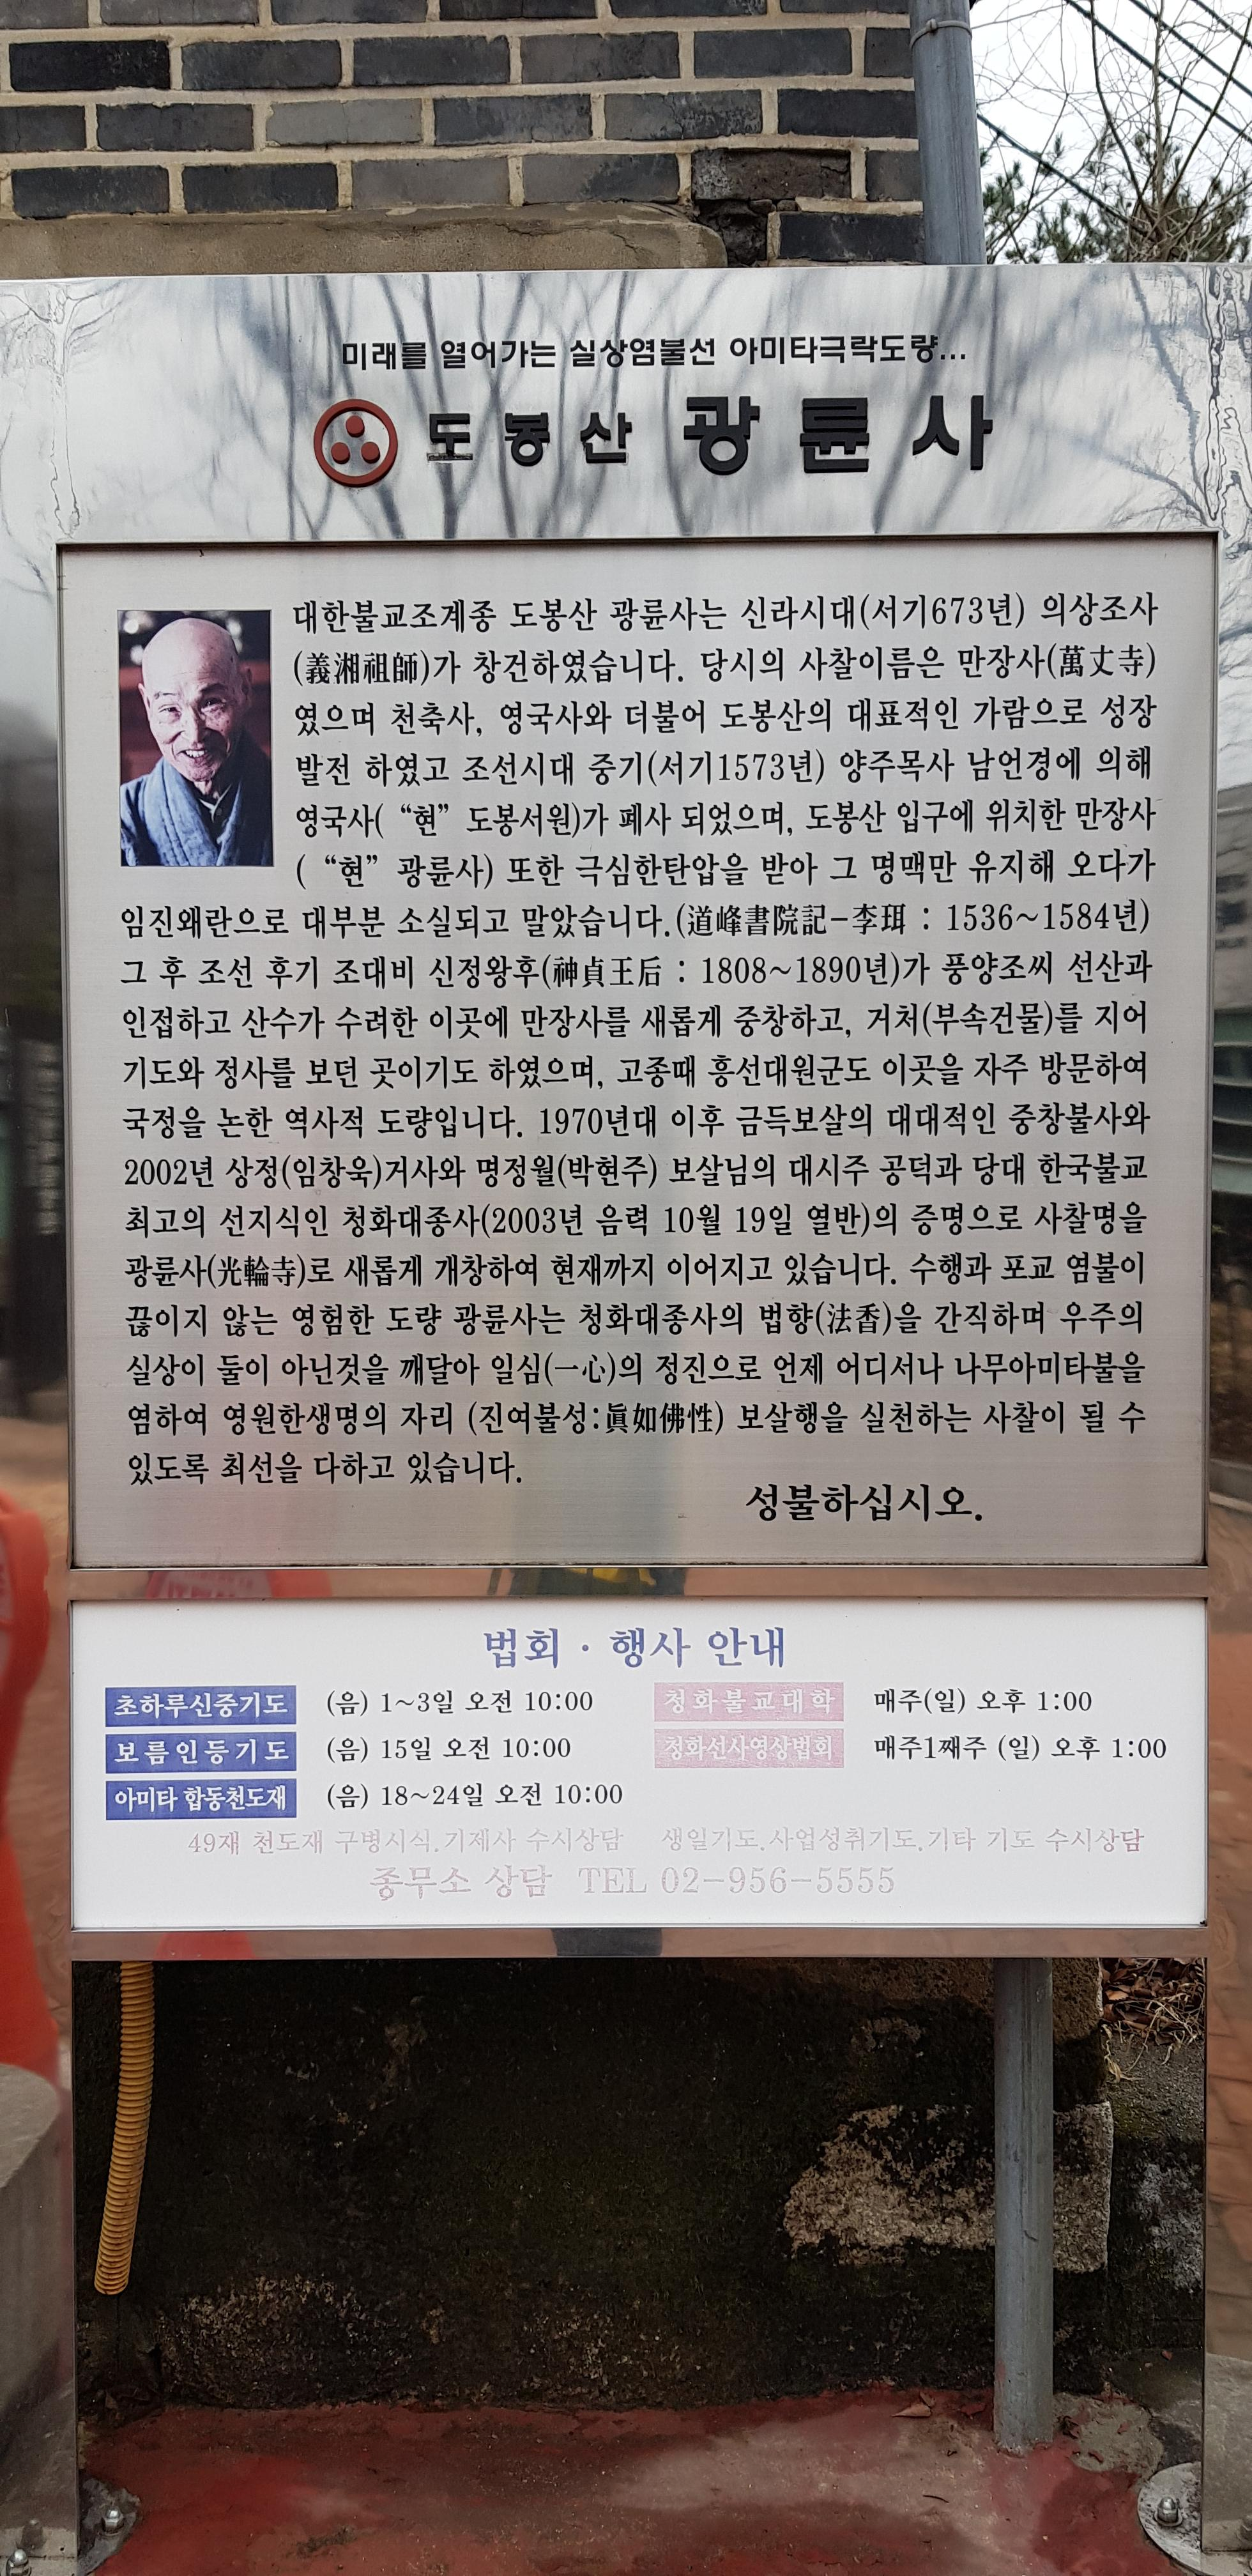 미래를 열어가는 실상염불선 아미타극락도량...
도봉산 광륜사
대한불교조계종 도봉산 광륜사는 신라시대(서기673년) 의상조사
(義湘祖師)가 창건하였습니다. 당시의 사찰이름은 만장사(萬丈寺)
였으며 천축사, 영국사와 더불어 도봉산의 대표적인 가람으로 성장
발전 하였고 조선시대 중기(서기1573년) 양주목사 남언경에 의해
영국사( “현” 도봉서원)가 폐사 되었으며, 도봉산 입구에 위치한 만장사
( “현” 광륜사) 또한 극심한탄압을 받아 그 명맥만 유지해 오다가
임진왜란으로 대부분 소실되고 말았습니다.(道峰書院記-李珥 : 1536~1584년)
그 후 조선 후기 조대비 신정왕후(神貞王后 : 1808~1890년)가 풍양조씨 선산과
인접하고 산수가 수려한 이곳에 만장사를 새롭게 중창하고, 거처(부속건물)를 지어
기도와 정사를 보던 곳이기도 하였으며, 고종때 흥선대원군도 이곳을 자주 방문하여
국정을 논한 역사적 도량입니다. 1970년대 이후 금득보살의 대대적인 중창불사와
2002년 상정(임창욱)거사와 명정월(박현주) 보살님의 대시주 공덕과 당대 한국불교
최고의 선지식인 청화대종사(2003년 음력 10월 19일 열반)의 증명으로 사찰명을
광륜사(光輪寺)로 새롭게 개창하여 현재까지 이어지고 있습니다. 수행과 포교 염불이
끊이지 않는 영험한 도량 광륜사는 청화대종사의 법향(法香)을 간직하며 우주의
실상이 둘이 아닌것을 깨달아 일심(一心)의 정진으로 언제 어디서나 나무아미타불을
염하여 영원한생명의 자리 (진여불성:眞如佛性) 보살행을 실천하는 사찰이 될 수
있도록 최선을 다하고 있습니다.
성불하십시오.
법회 · 행사 안내
초하루신중기도 (음) 1~3일 오전 10:00 청화불교대학 매주(일) 오후 1:00
보름인등기도 (음) 15일 오전 10:00 청화선사영상법회 매주1째주 (일) 오후 1:00
아미타 합동천도재 (음) 18~24일 오전 10:00
49재 천도재 구병시식.기제사 수시상담 생일기도.사업성취기도.기타 기도 수시상담
종무소 상담 TEL 02-956-5555